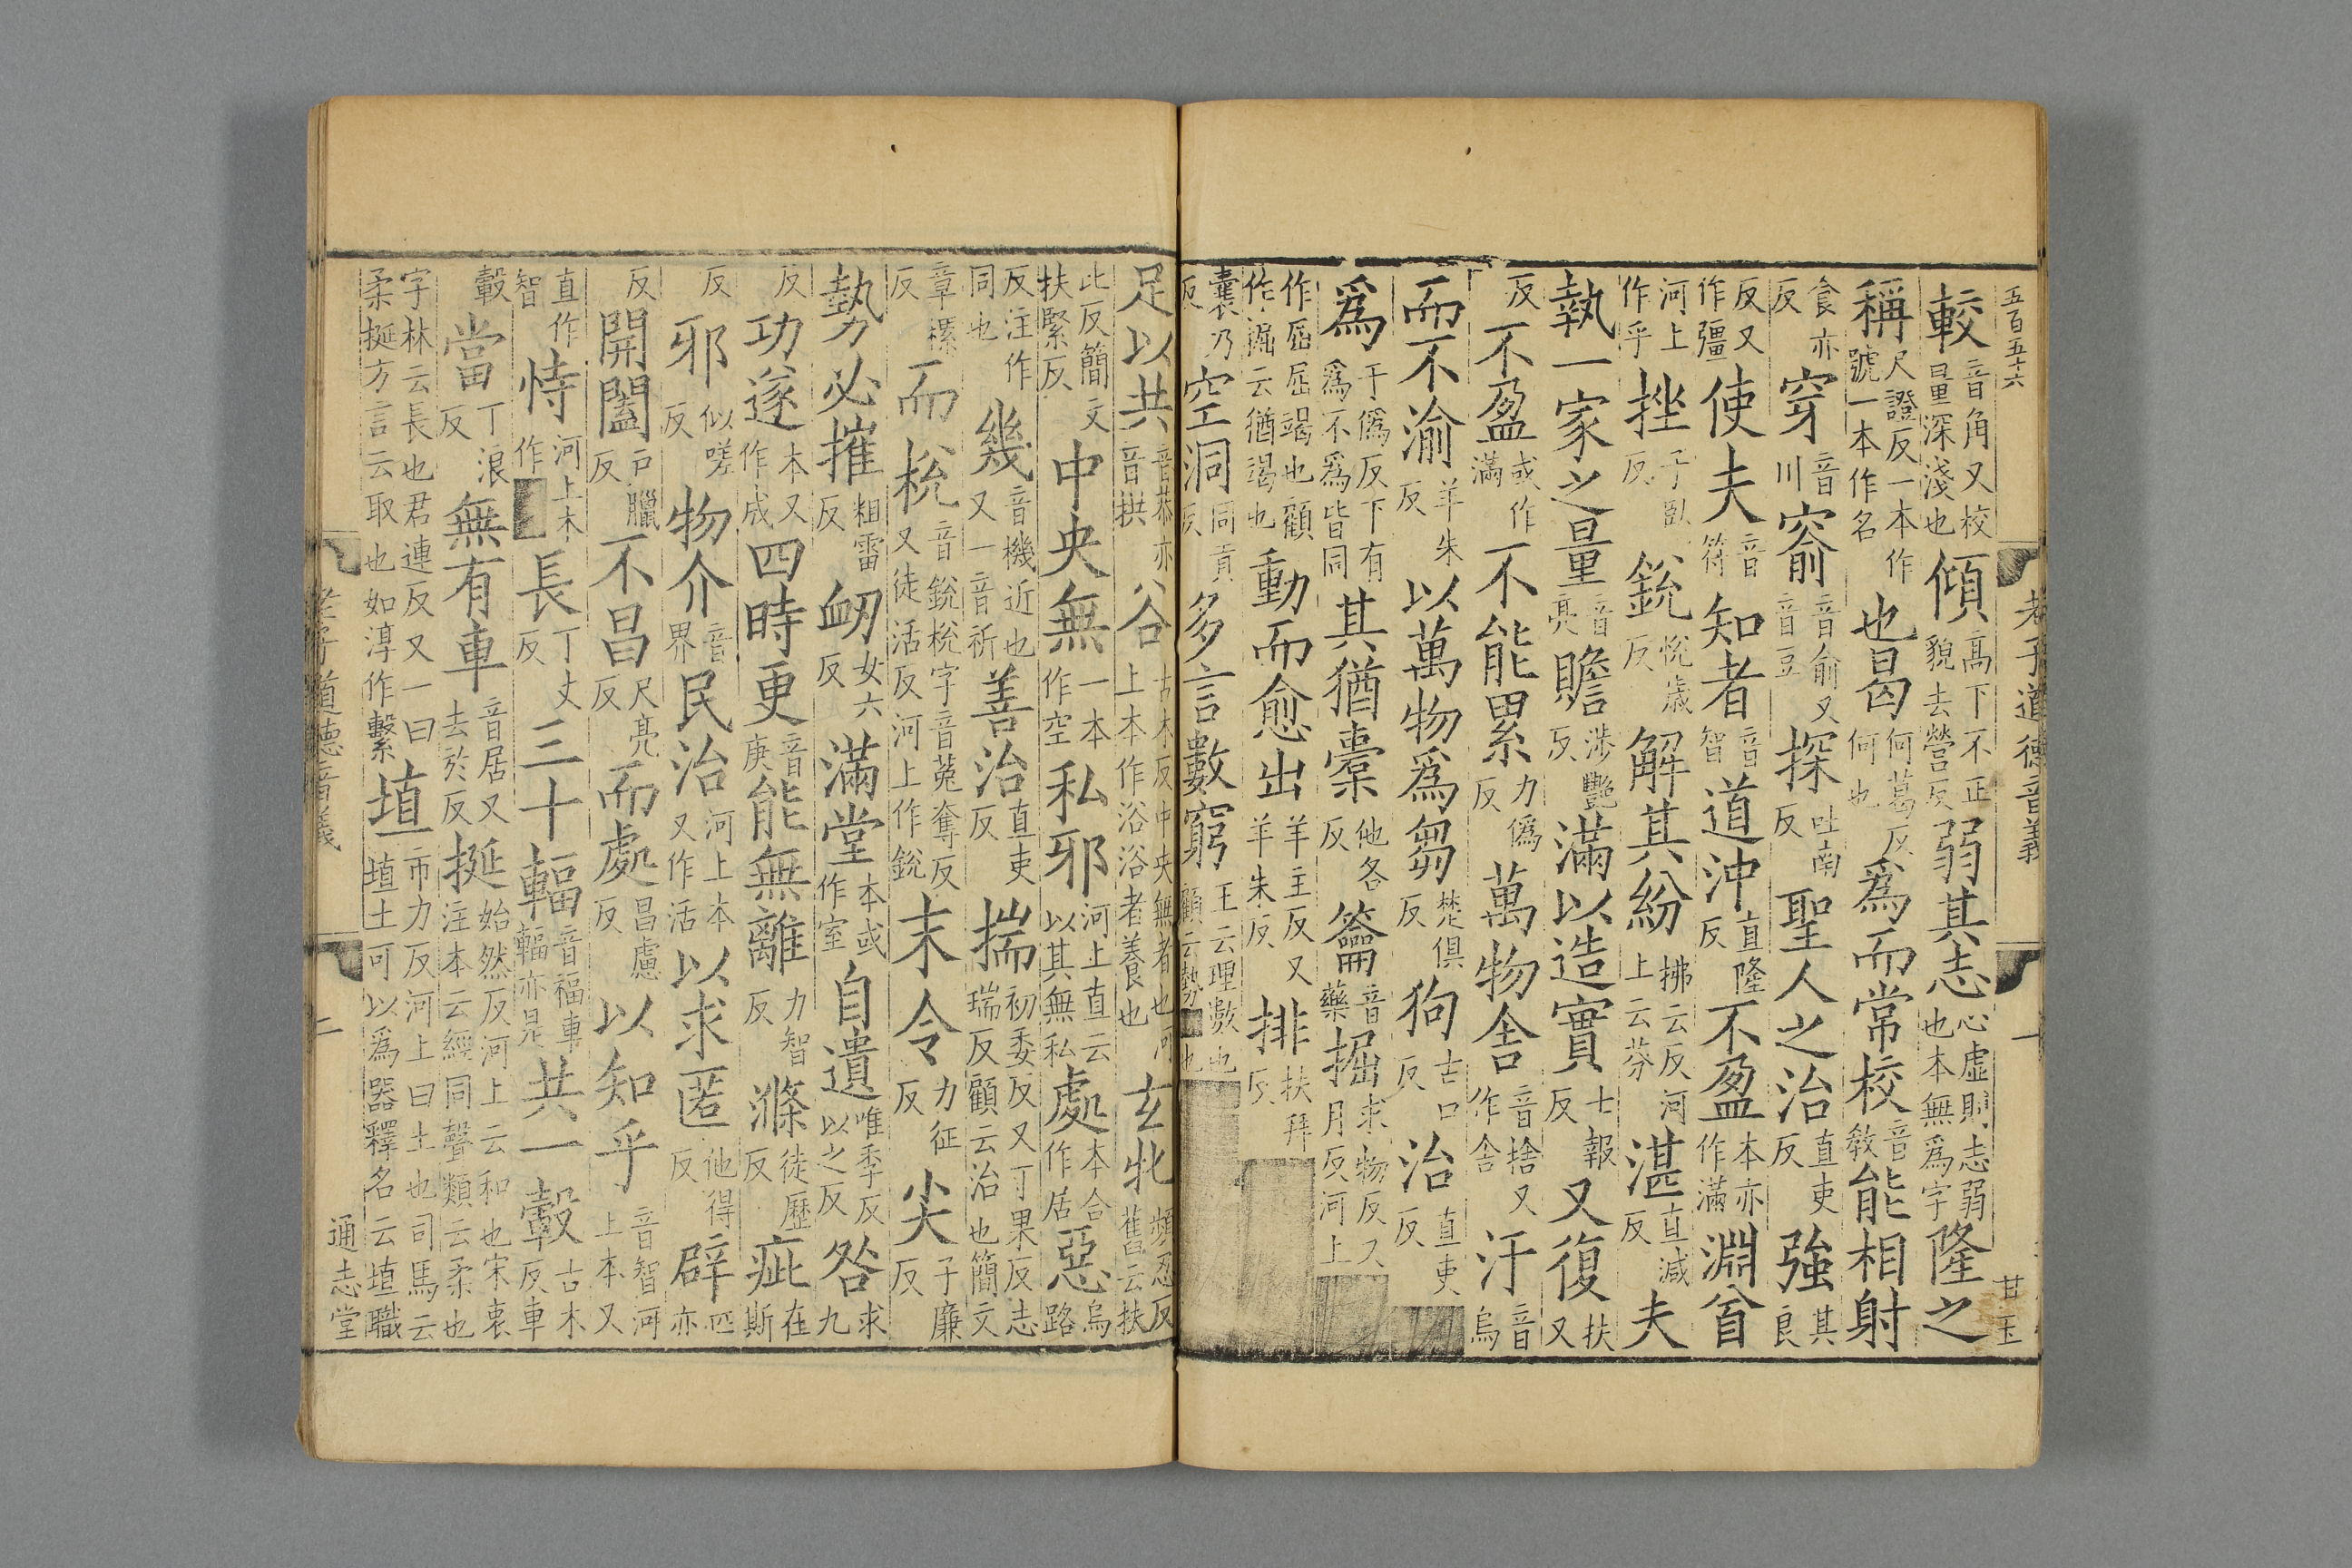 五百五十六 老子道德音義 一 甘玉
較音角又校量深淺也傾高下不正貌去營反弱其志心虛則志弱也本無爲字隆之
稱尺證反一本作號一本作名也曷何葛反何也爲而常校音教能相射
食亦反穿音川窬音俞又音豆探吐南反聖人之治直吏反強其良
反又作彊使夫音符知者音智道沖直隆反不盈本亦作滿淵兮
河上作乎挫子臥反銳悅歲反解其紛拂云反河上云芬湛直減反夫
執一家之量音亮贍涉豔反滿以造實士報反又復扶又
反不盈或作滿不能累力僞反萬物舍音捨又作舍汙音烏
而不渝羊朱反以萬物爲芻楚俱反狗古口反治直吏反
爲于僞反下有爲不爲皆同其猶橐他各反籥音藥掘求物反又月反河上
作屈屈竭也顧作掘云猶竭也動而愈出羊主反又羊朱反排扶拜反
囊乃反空洞同貢反多言數窮王云理數也顧云勢也
足以共音恭亦音拱谷古木反中央無者也河上本作浴浴者養也玄牝頻忍反舊云扶
比反簡文扶緊反中央無一本作空私邪河上直云以其無私處本合作居惡烏路
反注作同也幾音機近也又一音祈善治直吏反揣初委反又丁果反志瑞反顧云治也簡文
章樏反而梲音銳梲字音菟奪反又徒活反河上作銳末令力征反尖子廉反
勢必摧粗雷反衂女六反滿堂本或作室自遺唯季反以之反咎求九
反功遂本又作成四時更音庚能無離力智反滌徒歷反疵在斯
反邪似嗟反物介音界民治河上本又作活以求匿他得反辟匹亦
反開闔戶臘反不昌尺亮反而處昌慮反以知乎音智河上本又
直作智恃河上本作長丁丈反三十輻音福車輻亦是共一轂古木反車
轂當丁浪反無有車音居又去於反挻始然反河上云和也宋衷注本云經同聲類云柔也
字林云長也君連反又一曰柔挻方言云取也如淳作繫埴市力反河上曰土也司馬云埴土可以爲器釋名云埴職
老子道德音義 二 通志堂